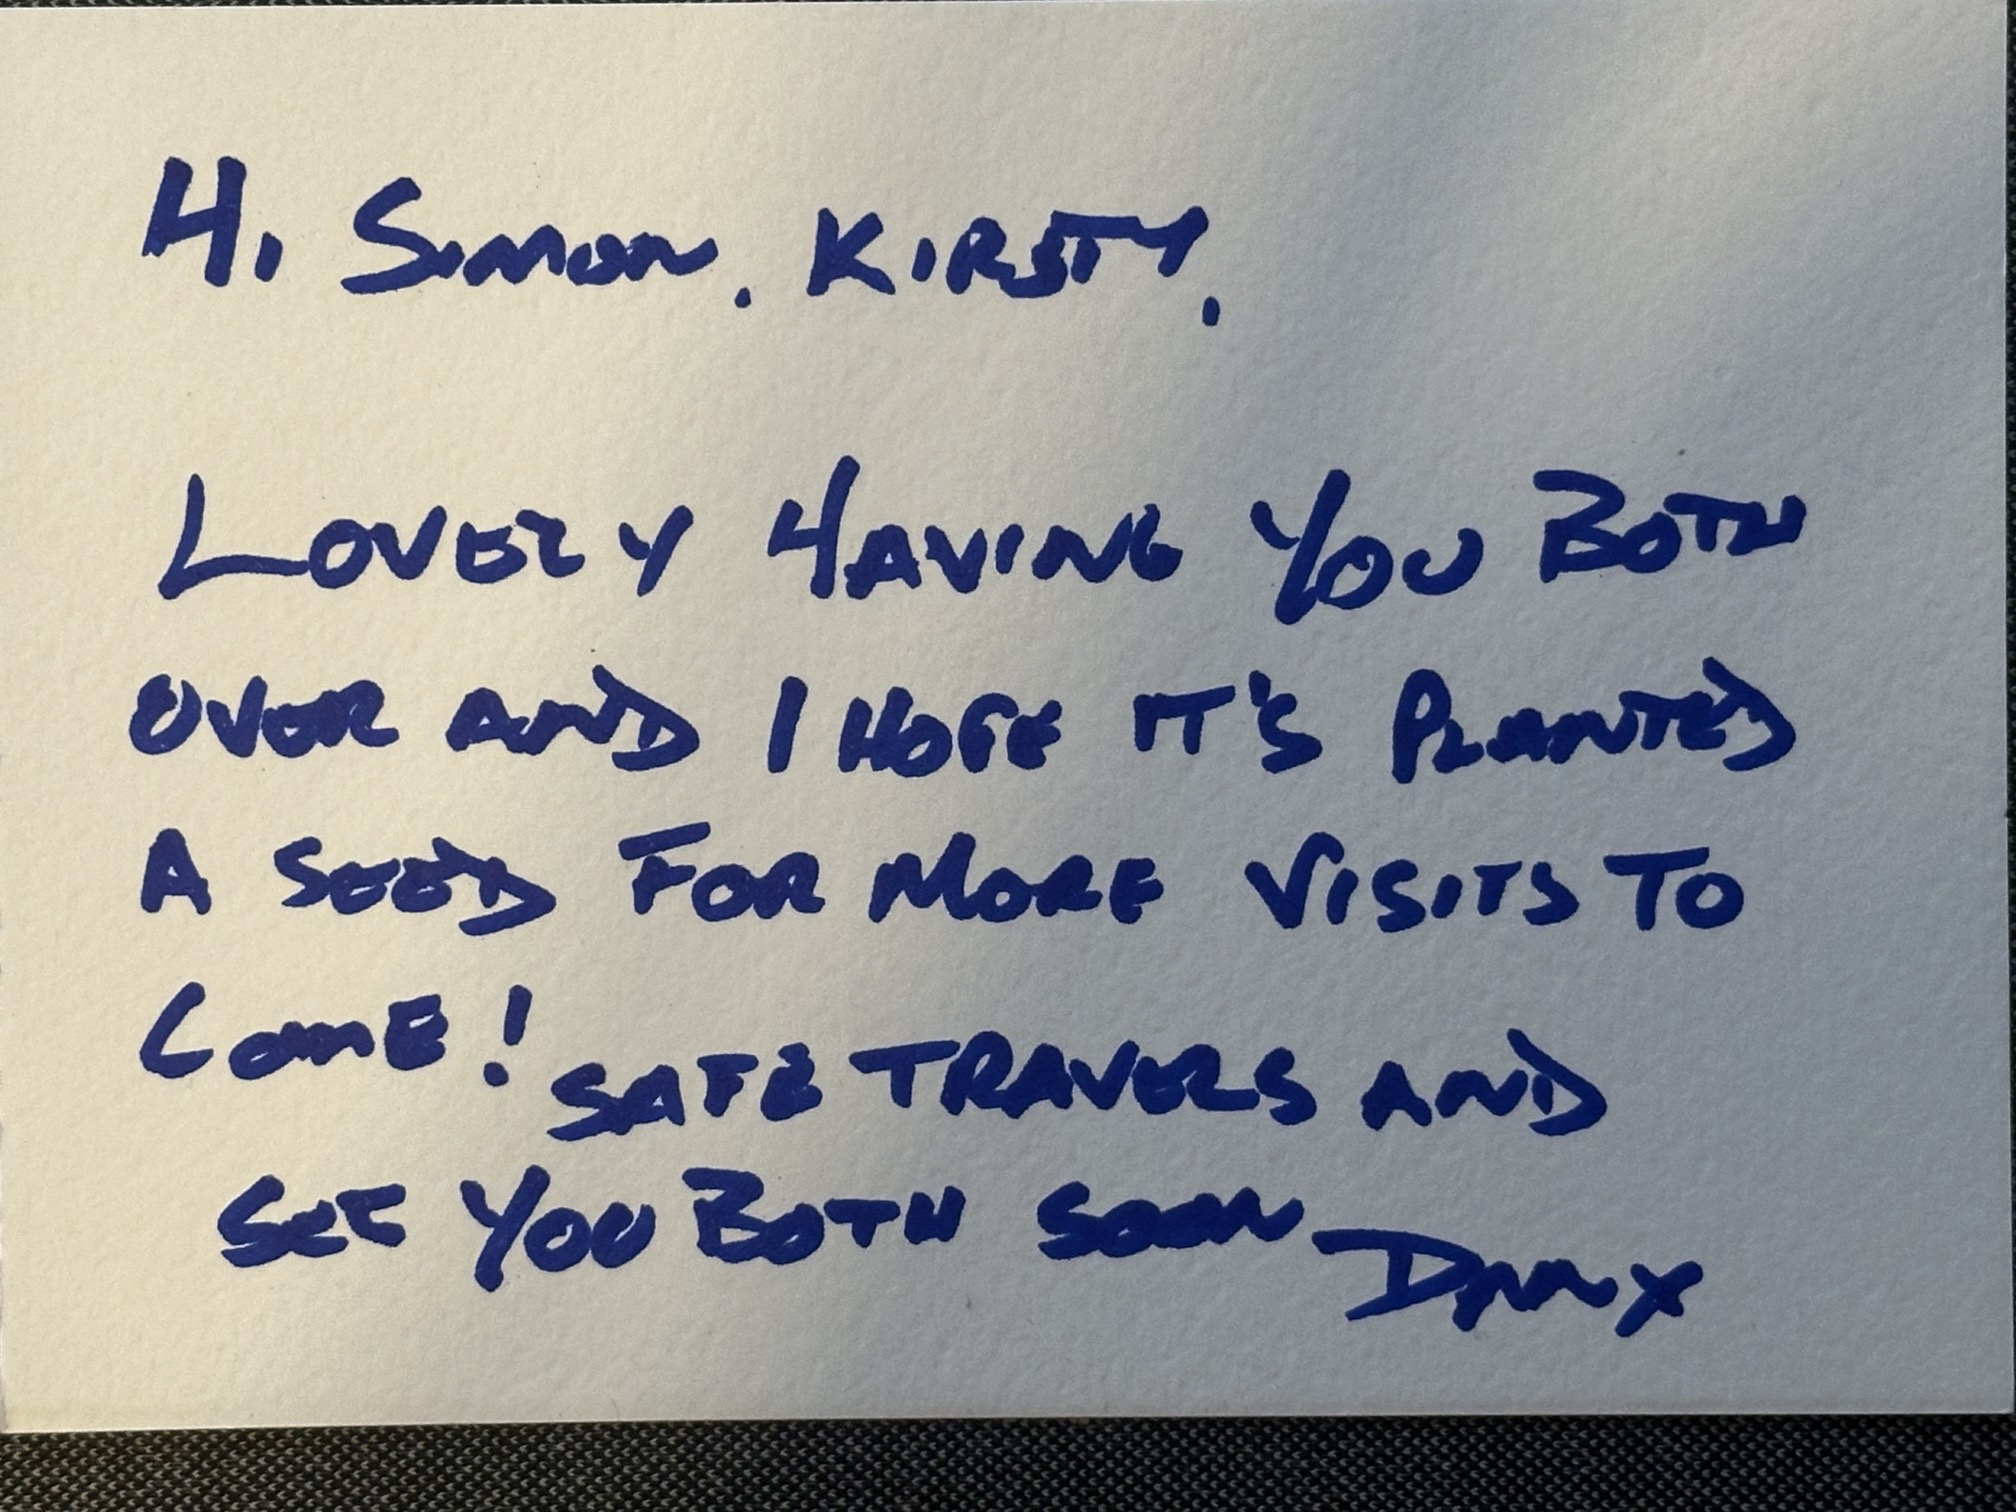 Hi Simon, Kirsty,
Lovely Having You Both
over and I hope it's planted
a seed for more visits to
come! Safe travels and
see you both soon
x